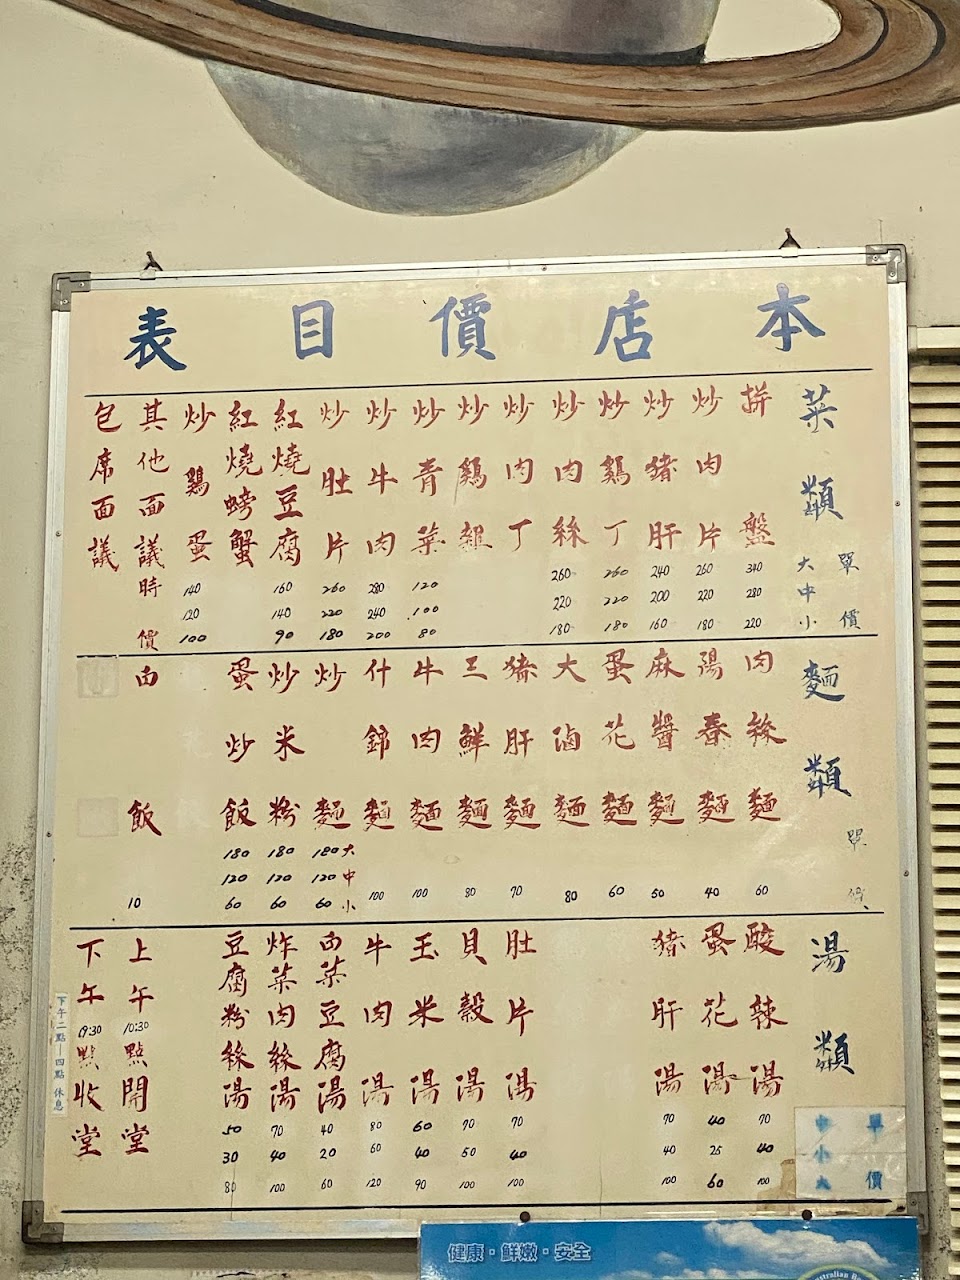 本店價目表
菜類
單價
大中小
拼盤 340 280 220
炒肉片 260 220 180
炒豬肝 240 200 160
炒鷄丁 260 220 180
炒肉絲 260 220 180
炒肉丁
炒鷄雜
炒青菜 120 100 80
炒牛肉 280 240 200
炒肚片 260 220 180
紅燒豆腐 160 140 90
紅燒螃蟹
炒鷄蛋 140 120 100
其他面議時價
包席面議
麵類
單價
肉絲麵 60
陽春麵 40
麻醬麵 50
蛋花麵 60
大滷麵 80
豬肝麵 70
三鮮麵 80
牛肉麵 100
什錦麵 100
大中小
炒麵 180 120 60
炒米粉 180 120 60
蛋炒飯 180 120 60
白飯 10
湯類
單價
中小大
酸辣湯 70 40 100
蛋花湯 40 25 60
豬肝湯 70 40 100
肚片湯 70 40 100
貝穀湯 70 50 100
玉米湯 60 40 90
牛肉湯 80 60 120
白菜豆腐湯 40 20 60
炸菜肉絲湯 70 40 100
豆腐粉絲湯 50 30 80
上午10:30點開堂
下午19:30點收堂
下午二點—四點 休息
健康·鮮嫩·安全